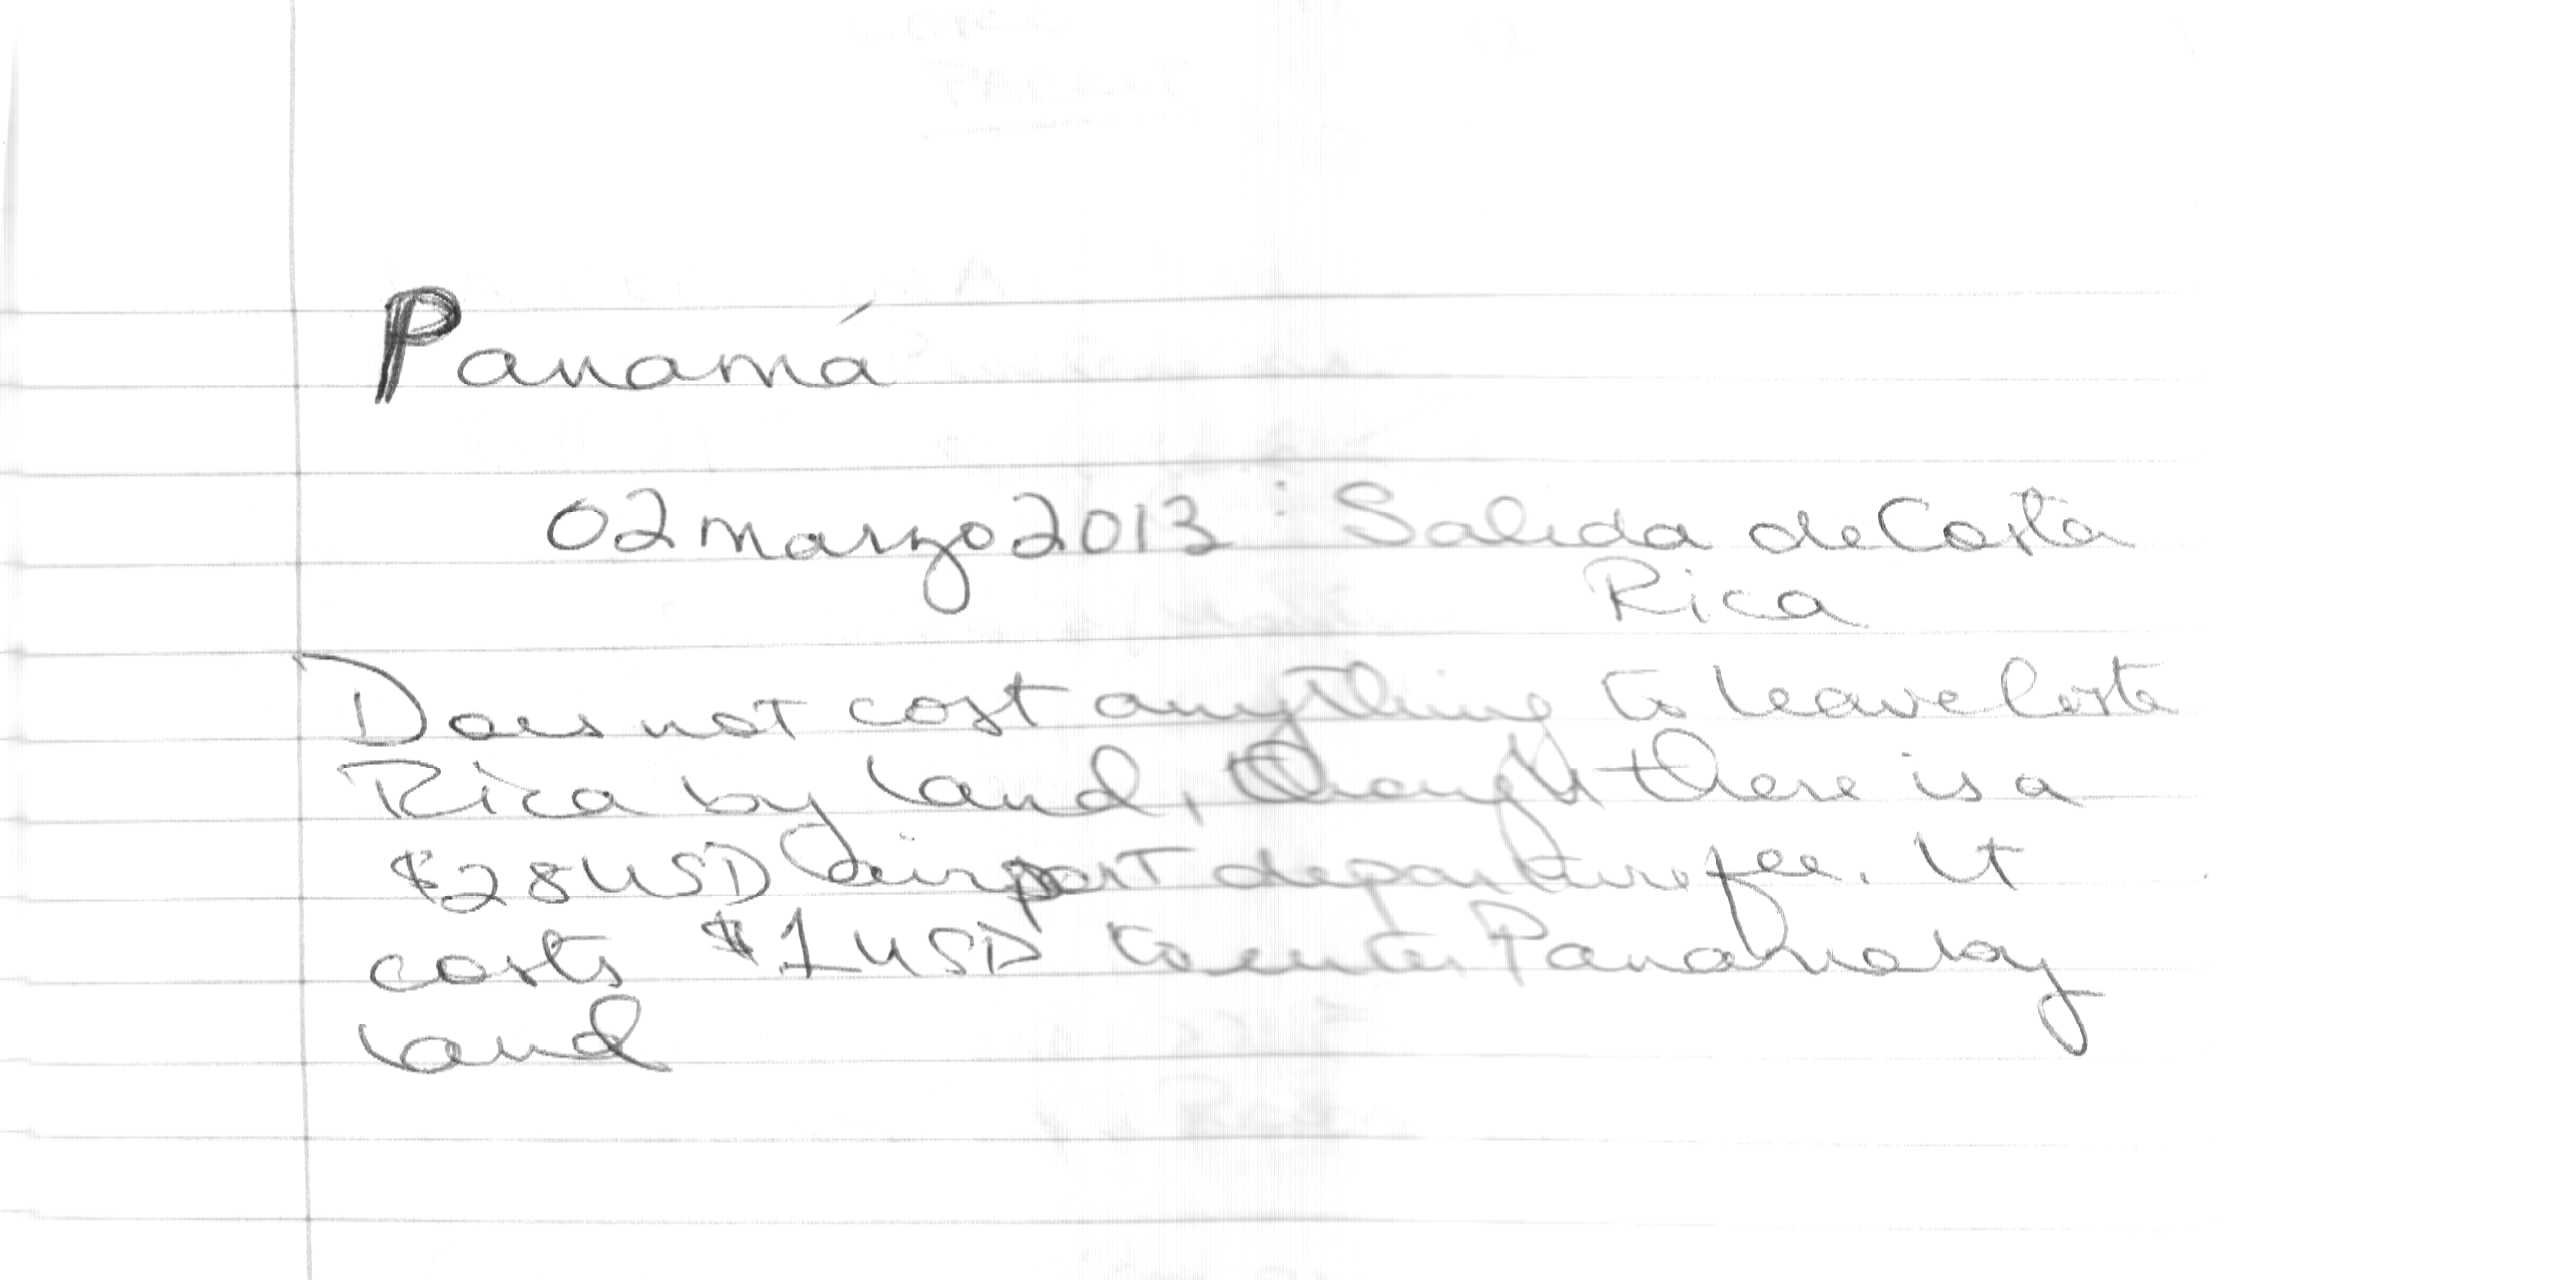 Panamá
02 marzo 2013 : Salida de Costa
Rica
Does not cost anything to leave Costa
Rica by land, though there is a
$28 USD airport departure fee. It
costs $1 USD to enter Panama by
land